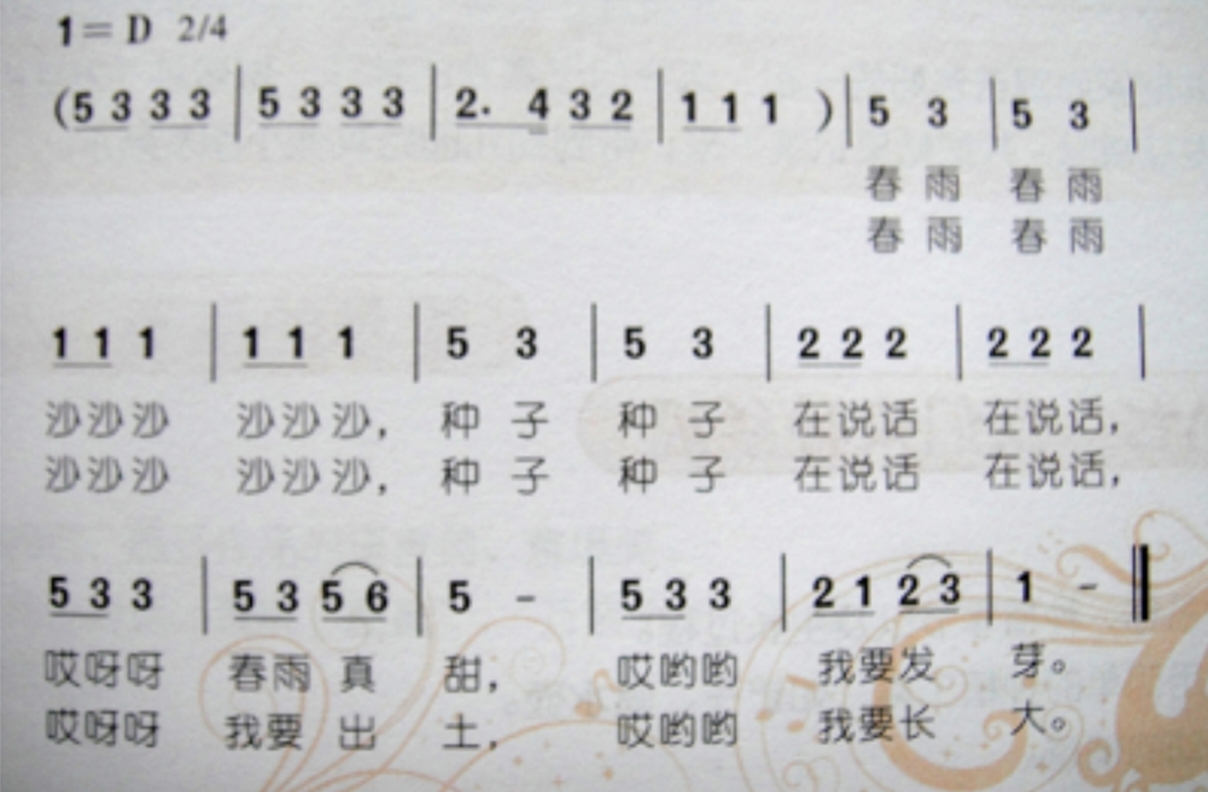 1=D 2/4
(5 3 3 3 | 5 3 3 3 | 2. 4 3 2 | 1 1 1 ) | 5 3 | 5 3 |
春 雨 春 雨
春 雨 春 雨
1 1 1 | 1 1 1 | 5 3 | 5 3 | 2 2 2 | 2 2 2 |
沙沙沙 沙沙沙, 种 子 种 子 在说话 在说话,
沙沙沙 沙沙沙, 种 子 种 子 在说话 在说话,
5 3 3 | 5 3 5 6 | 5 - | 5 3 3 | 2 1 2 3 | 1 - ‖
哎呀呀 春雨 真 甜, 哎哟哟 我要发 芽。
哎呀呀 我要 出 土, 哎哟哟 我要长 大。